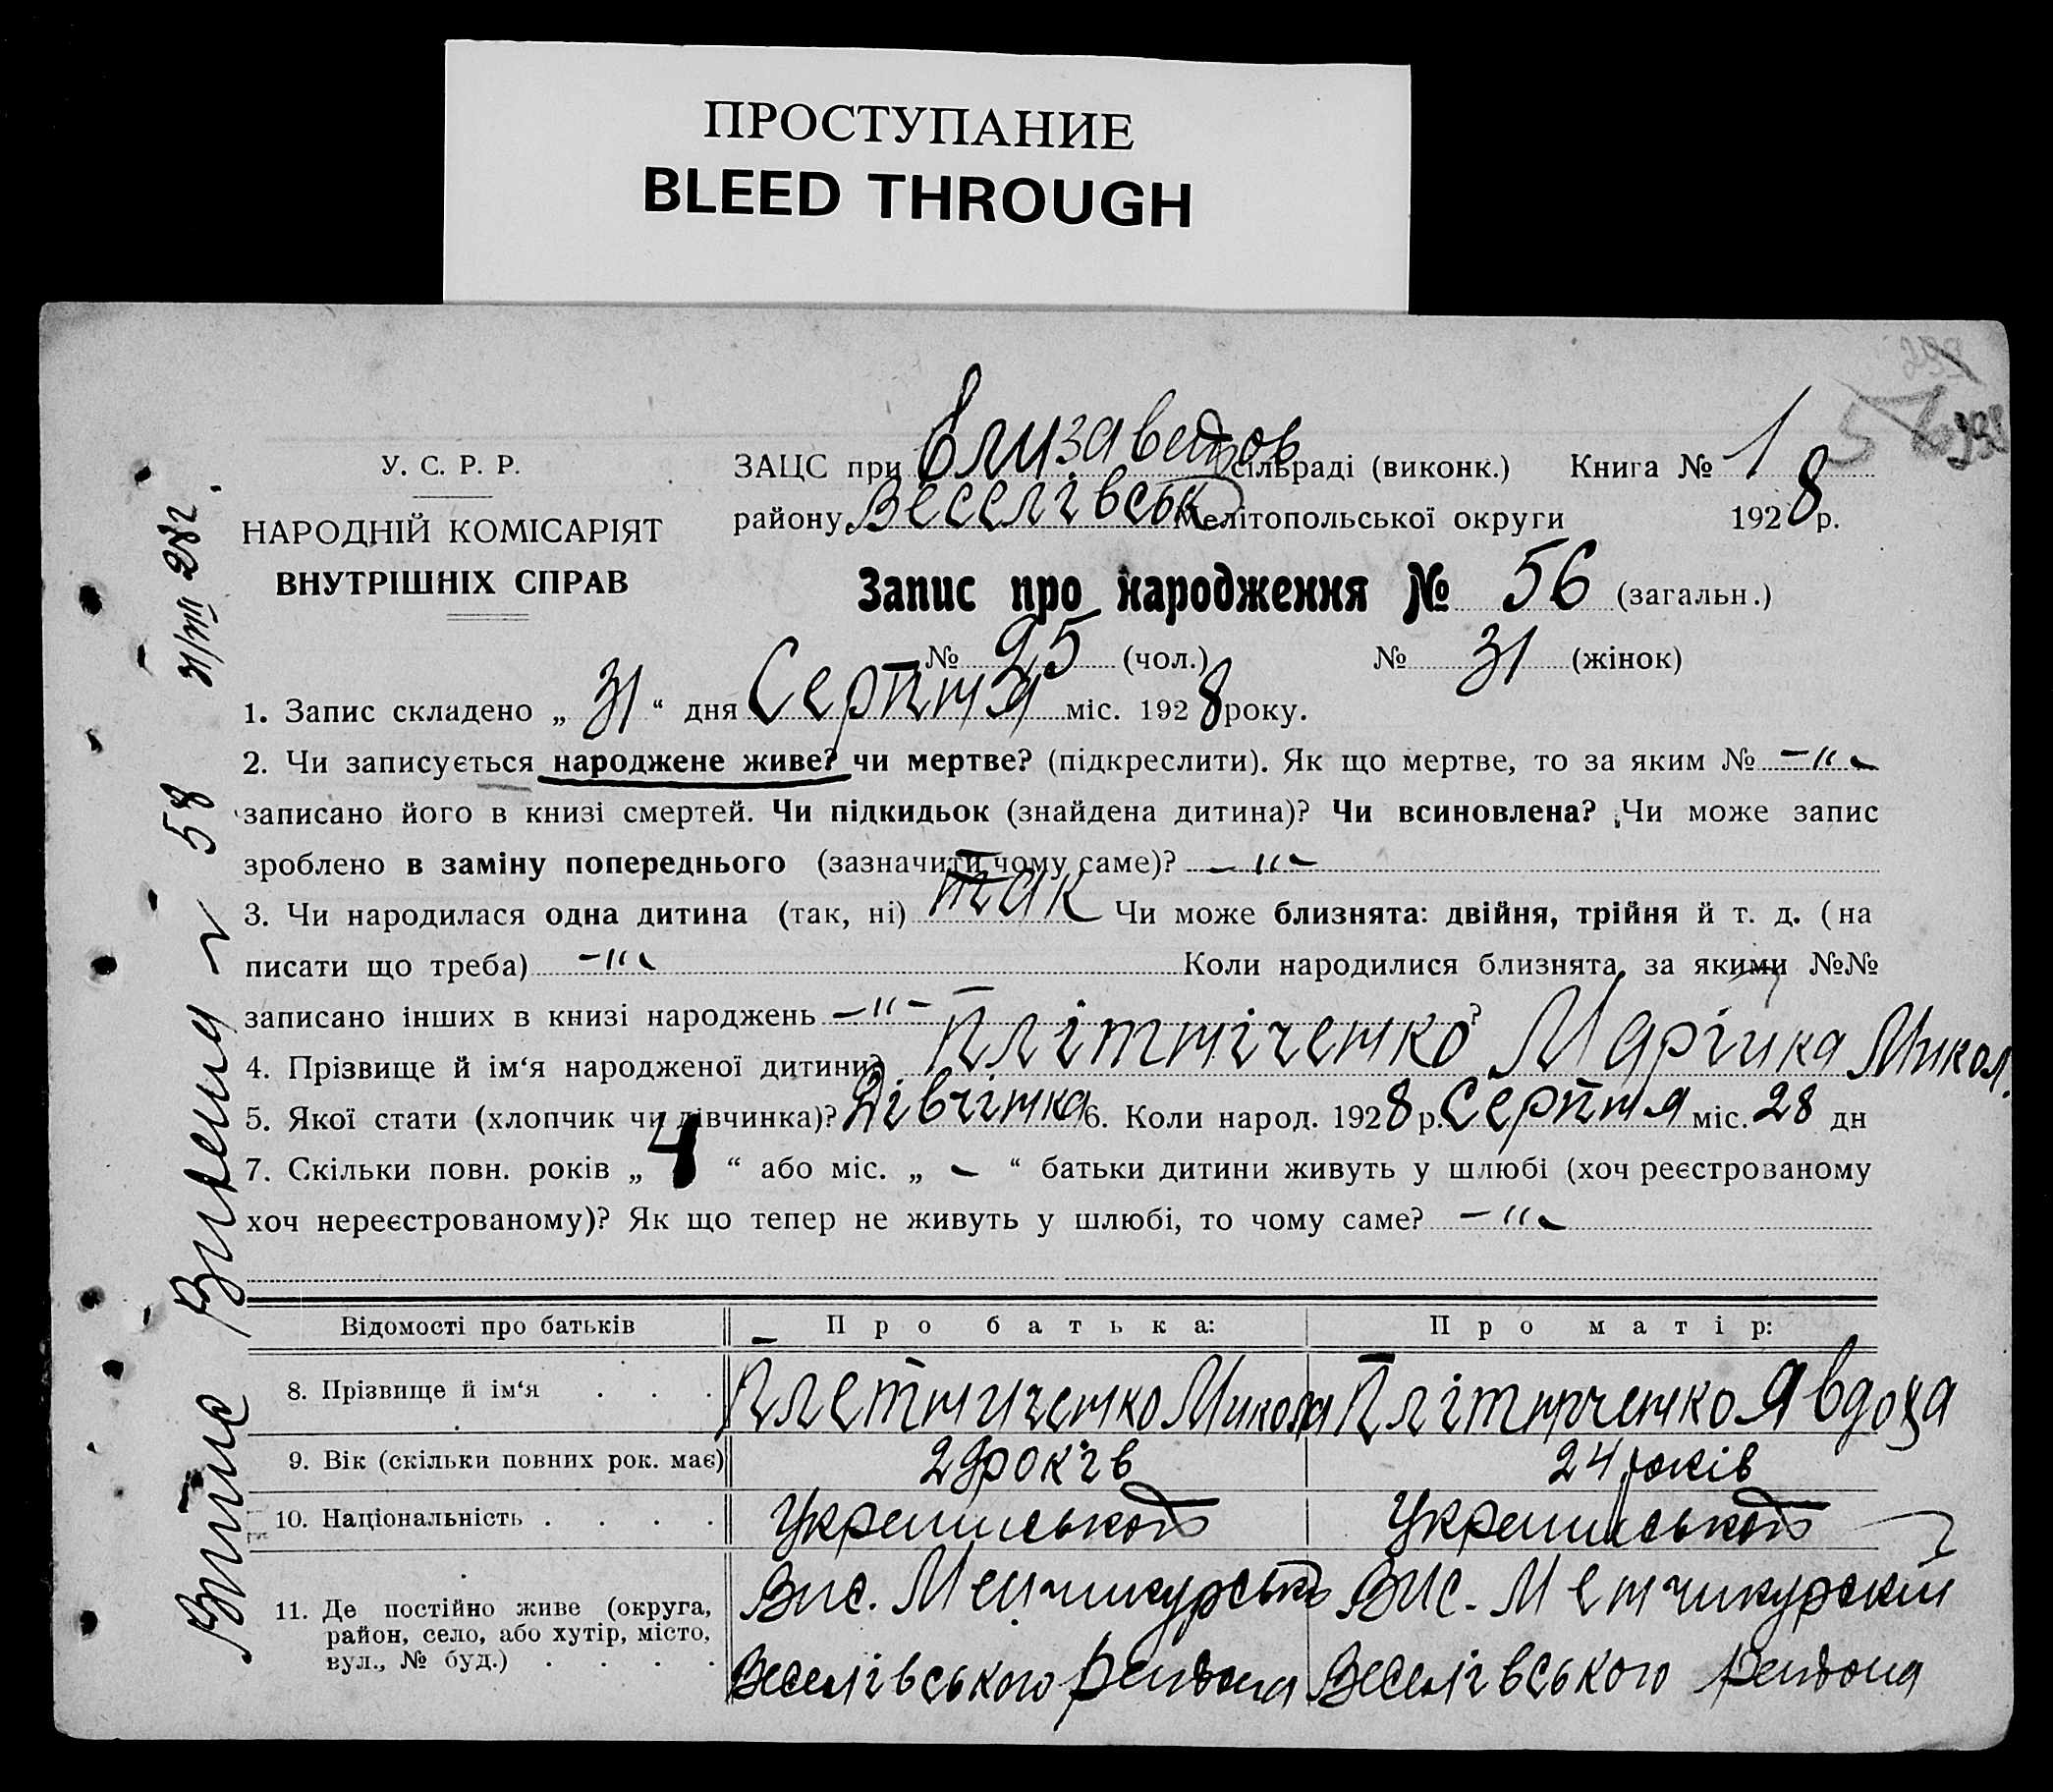 ПРОСТУПАНИЕ
BLEED THROUGH
У. С. Р. Р.
НАРОДНІЙ КОМІСАРІЯТ
ВНУТРІШНІХ СПРАВ
ЗАЦС при Елизаветов сільраді (виконк.) Книга № 1
району Веселівськ Мелітопольської округи 1928 р.
Запис про народження № 56 (загальн.)
№ 25 (чол.) № 31 (жінок)
1. Запис складено „ 31 “ дня Серпня міс. 1928 року.
2. Чи записується народжене живе? чи мертве? (підкреслити). Як що мертве, то за яким № -"-
записано його в книзі смертей. Чи підкидьок (знайдена дитина)? Чи всиновлена? Чи може запис
зроблено в заміну попереднього (зазначити чому саме)? -"-
3. Чи народилася одна дитина (так, ні) так Чи може близнята: двійня, трійня й т. д. (на
писати що треба) -"- Коли народилися близнята, за якими №№
записано інших в книзі народжень -"- ?
4. Прізвище й ім‘я народженої дитини? Плітніченко Марійка Микол.
5. Якої стати (хлопчик чи дівчинка)? Дівчінка 6. Коли народ. 1928 р. Серпня міс. 28 дн
7. Скільки повн. років „ 4 “ або міс. „ - “ батьки дитини живуть у шлюбі (хоч реєстрованому
хоч нереєстрованому)? Як що тепер не живуть у шлюбі, то чому саме? -"-
Відомості про батьків Про батька: Про матір:
8. Прізвище й ім‘я . . . Плетниченко Микола Плітниченко Явдоха
9. Вік (скільки повних рок. має) 29 років 24 років
10. Національність . . . . Україньської Україньської
11. Де постійно живе (округа, район, село, або хутір, місто, вул., № буд.) . . . .
Вис. Менчикурськ Вис. Менчикурскій
Веселівського района Веселівського района
58